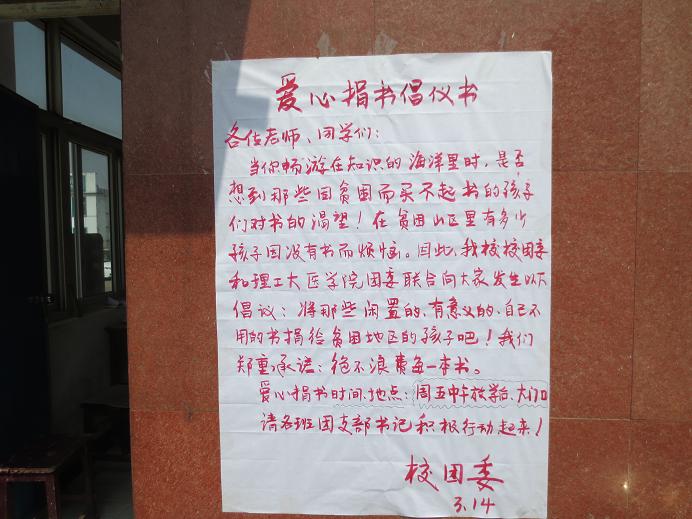 爱心捐书倡仪书
各位老师、同学们:
当你畅游在知识的海洋里时,是否
想到那些因贫困而买不起书的孩子
们对书的渴望!在贫困山区里有多少
孩子因没有书而烦恼。因此,我校校团委
和理工大医学院团委联合向大家发生以下
倡议:将那些闲置的、有意义的、自己不
用的书捐给贫困地区的孩子吧!我们
郑重承诺:绝不浪费每一本书。
爱心捐书时间、地点:周五中午放学后、大门口
请各班团支部书记积极行动起来!
校团委
3.14